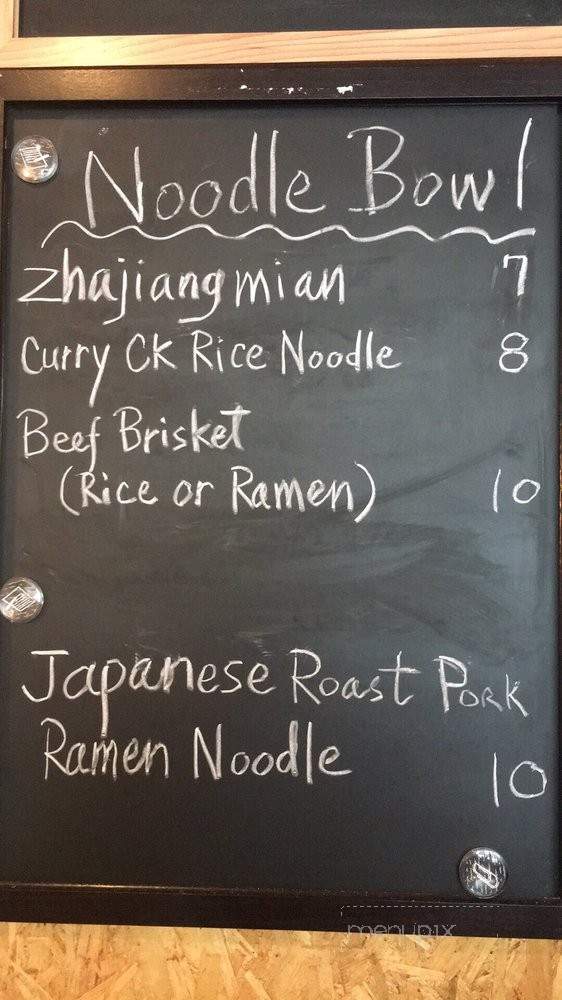 Noodle Bowl
Zhajiangmian 7
Curry CK Rice Noodle 8
Beef Brisket
(Rice or Ramen) 10
Japanese Roast Pork
Ramen Noodle 10
menupix